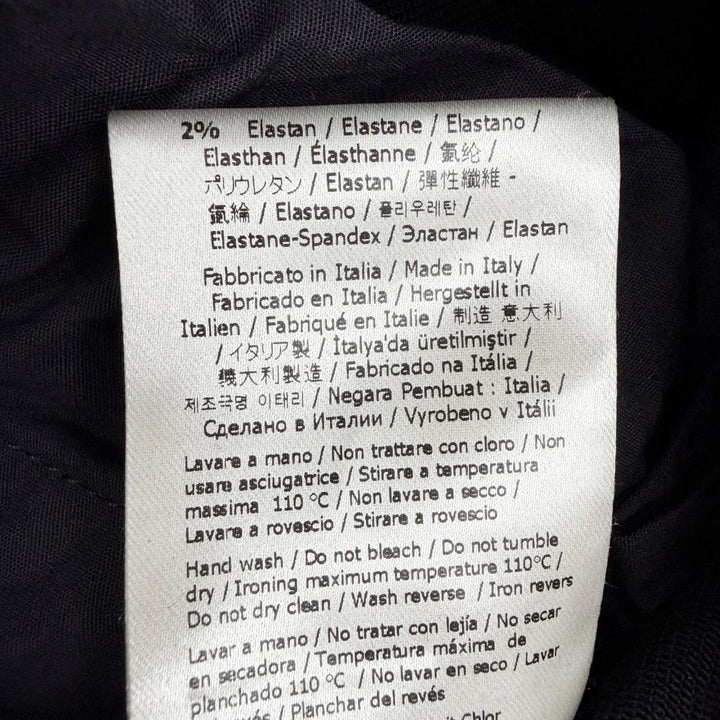 2% Elastan / Elastane / Elastano /
Elasthan / Élasthanne / 氨纶 /
パリウレタン / Elastan / 彈性纖維 -
氨綸 / Elastano / 폴리우레탄 /
Elastane-Spandex / Эластан / Elastan
Fabbricato in Italia / Made in Italy /
Fabricado en Italia / Hergestellt in
Italien / Fabriqué en Italie / 制造 意大利
/ イタリア製 / İtalya'da üretilmiştir /
義大利製造 / Fabricado na Itália /
제조국명 이태리 / Negara Pembuat : Italia /
Сделано в Италии / Vyrobeno v Itálii
Lavare a mano / Non trattare con cloro / Non
usare asciugatrice / Stirare a temperatura
massima 110 °C / Non lavare a secco /
Lavare a rovescio / Stirare a rovescio
Hand wash / Do not bleach / Do not tumble
dry / Ironing maximum temperature 110°C /
Do not dry clean / Wash reverse / Iron revers
Lavar a mano / No tratar con lejía / No secar
en secadora / Temperatura máxima de
planchado 110 °C / No lavar en seco / Lavar
revés / Planchar del revés
Chlor